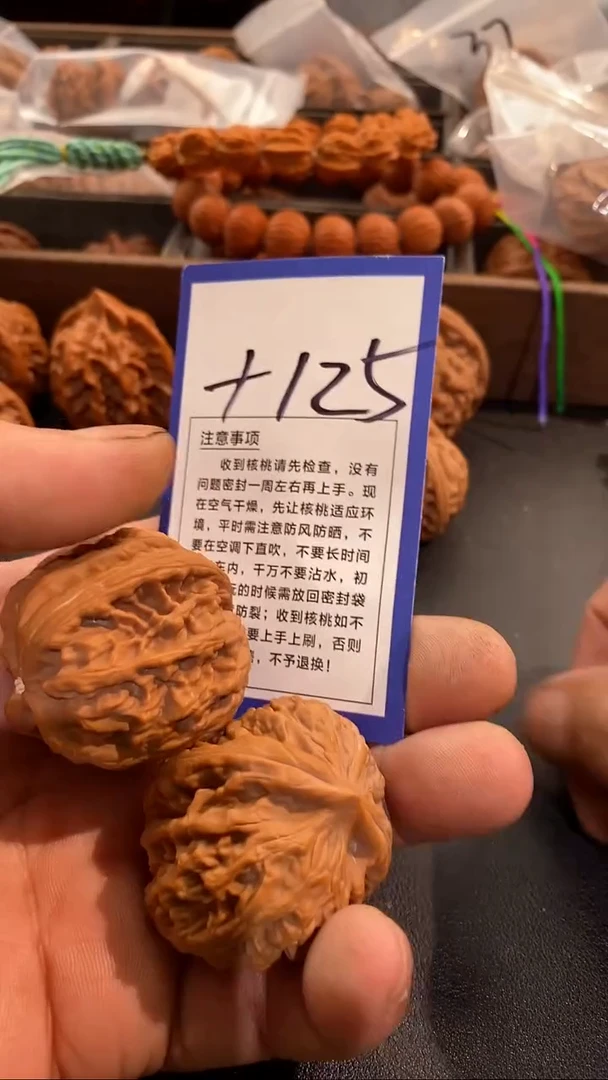 +125
注意事项
收到核桃请先检查，没有
问题密封一周左右再上手。现
在空气干燥，先让核桃适应环
境，平时需注意防风防晒，不
要在空调下直吹，不要长时间
车内，千万不要沾水，初
玩的时候需放回密封袋
防裂；收到核桃如不
要上手上刷，否则
，不予退换！